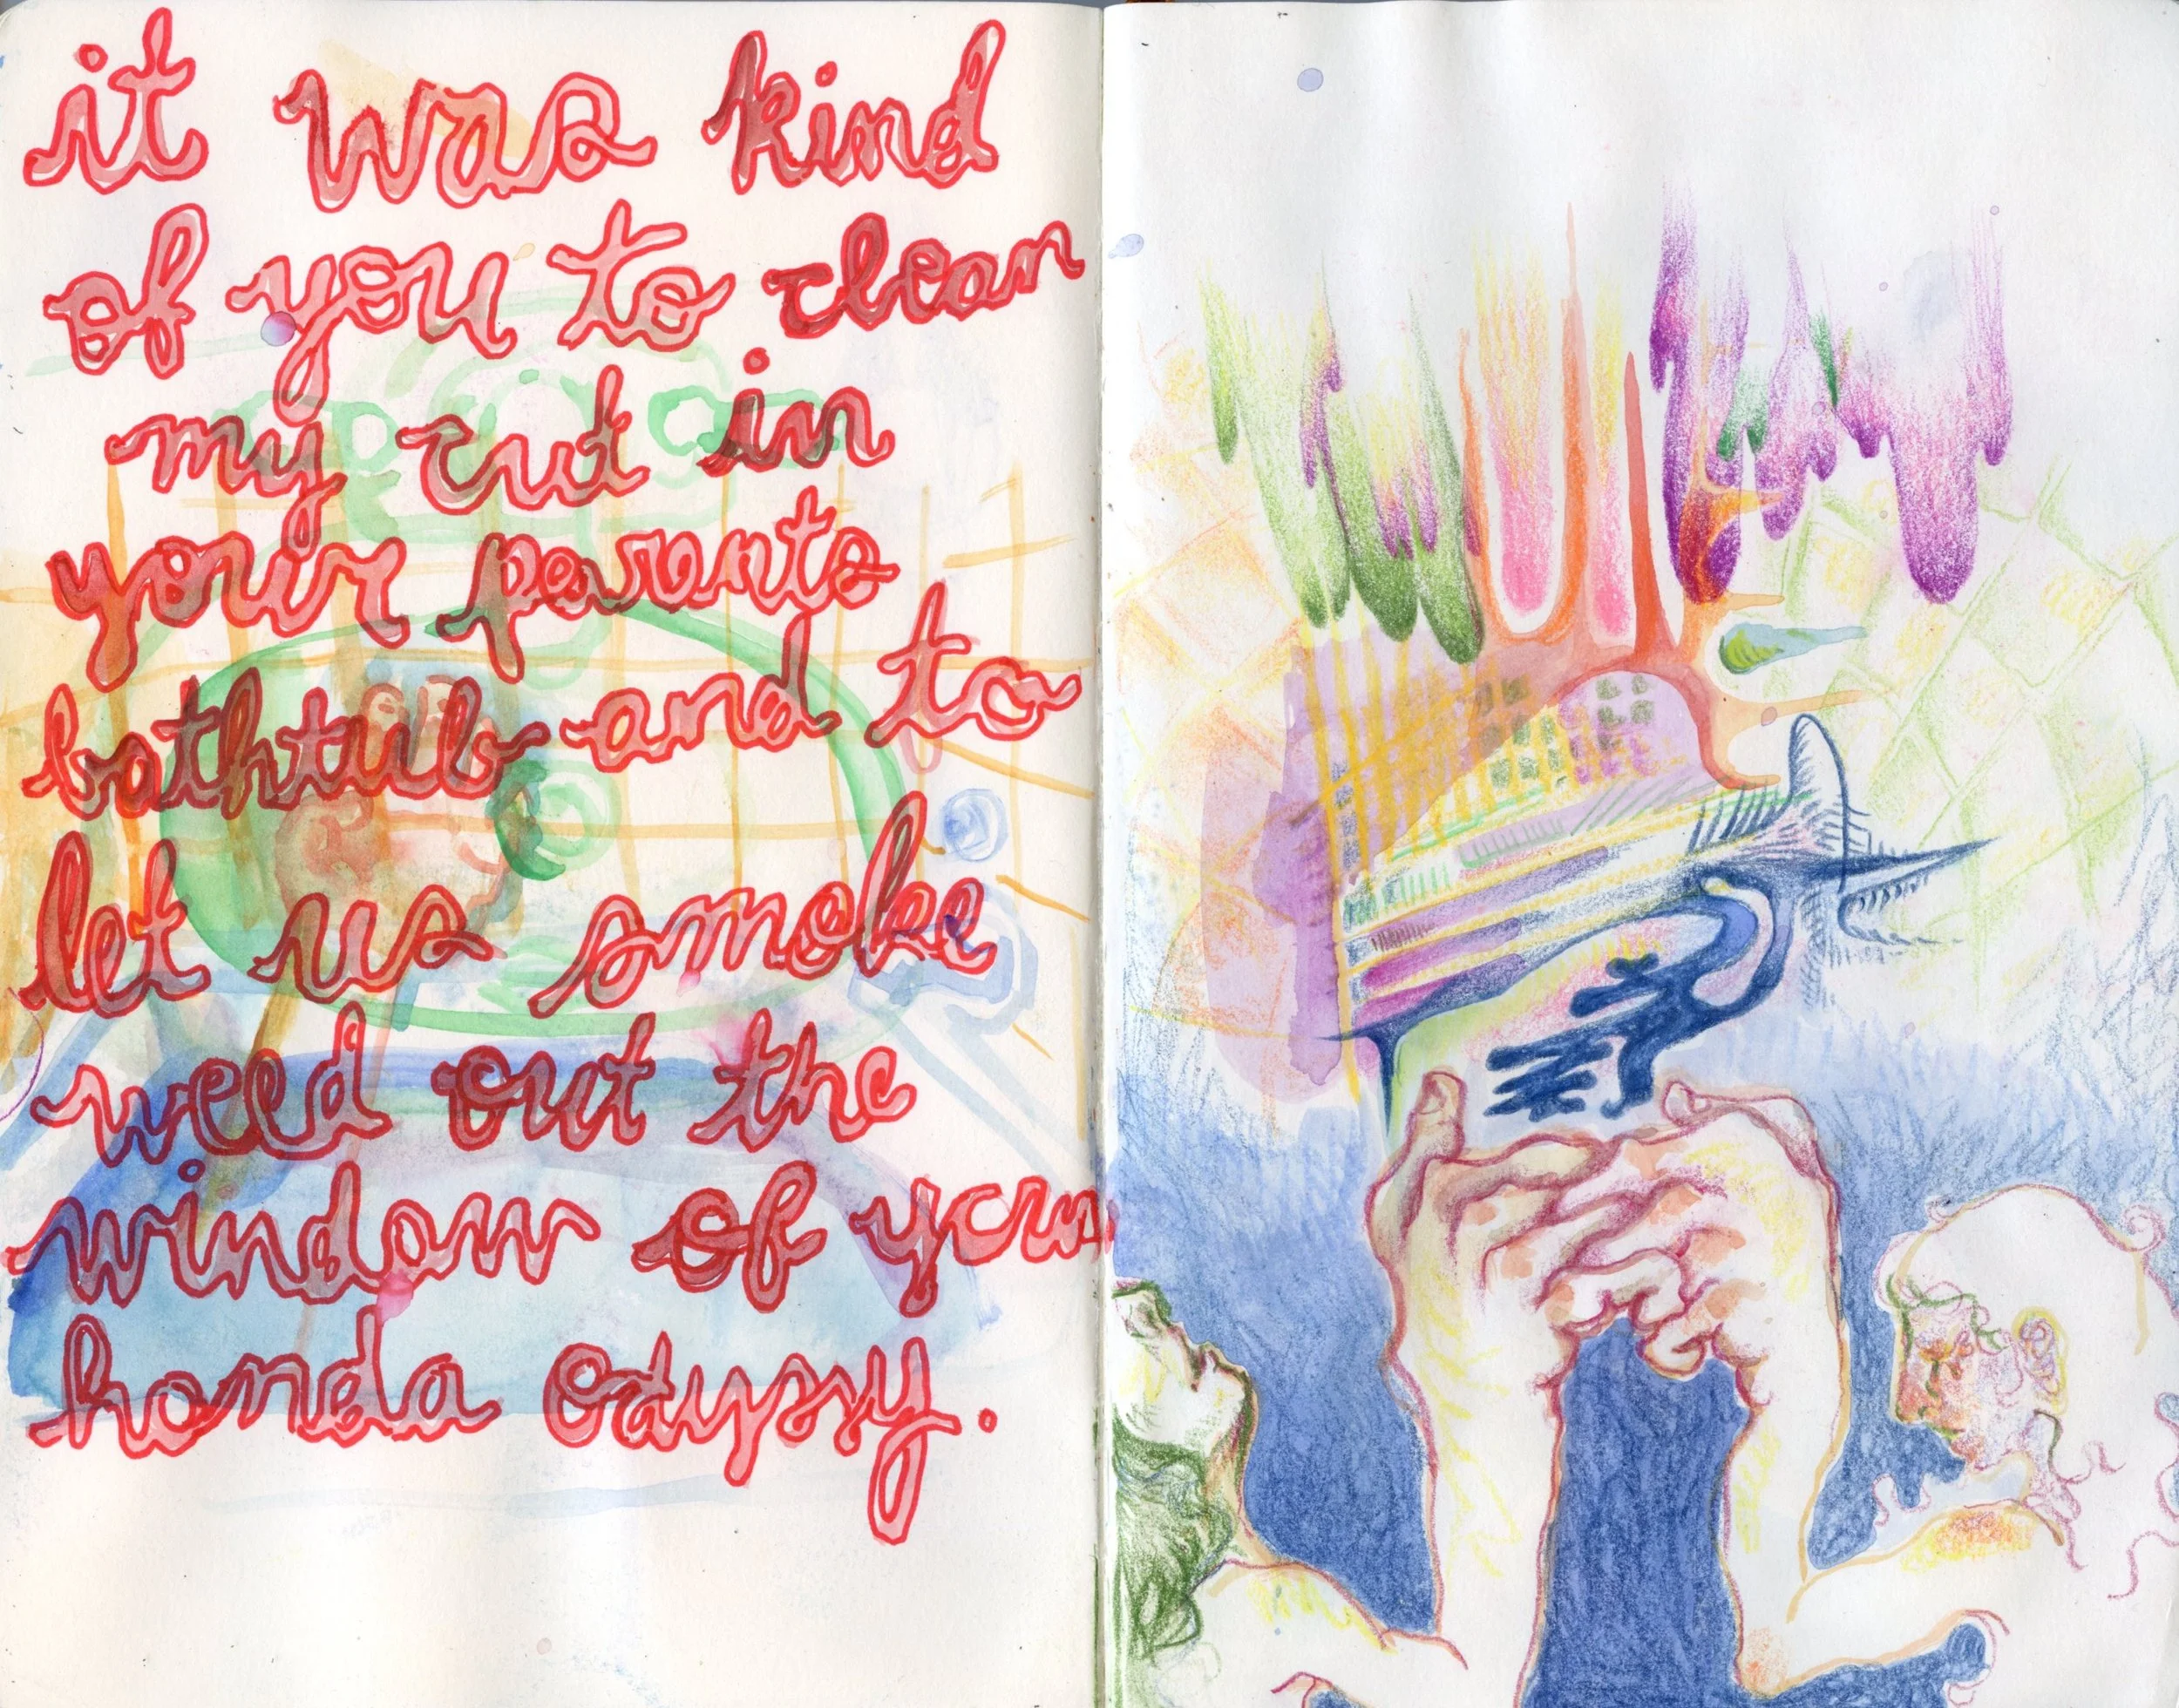 it was kind
of you to clean
my cut in
your parents
bathtub and to
let us smoke
weed out the
window of your
honda odyssy.